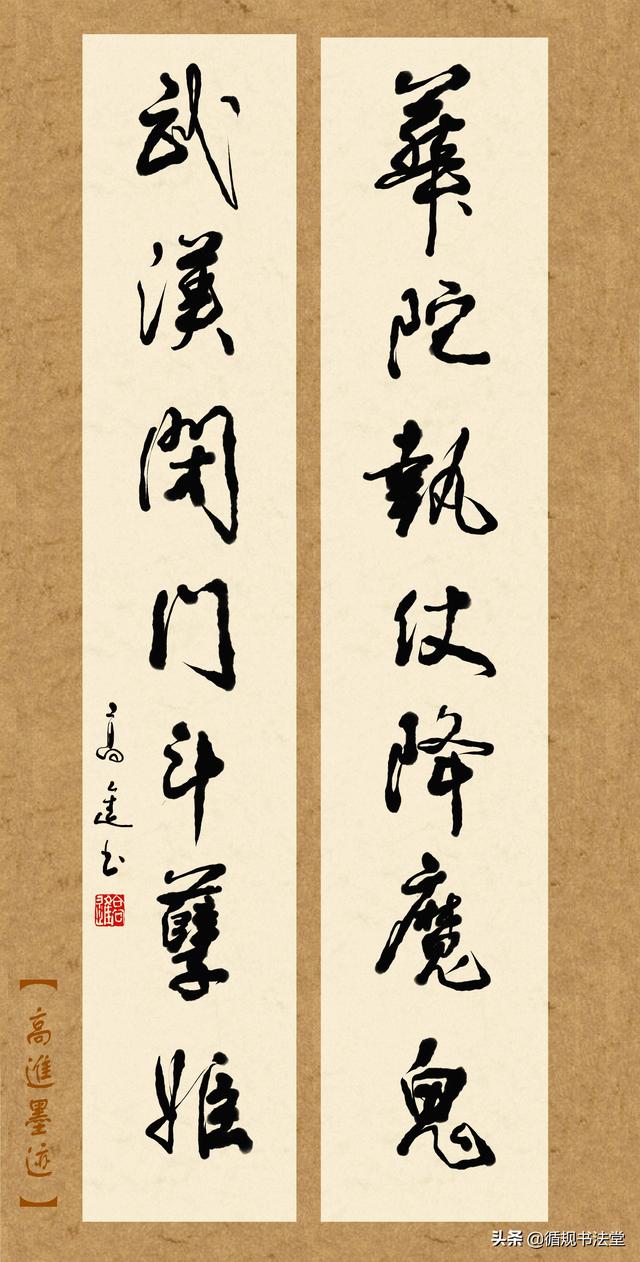 華陀執仗降魔鬼
武漢閉门斗孽姬
高進书
【高進墨迹】
头条 @循规书法堂